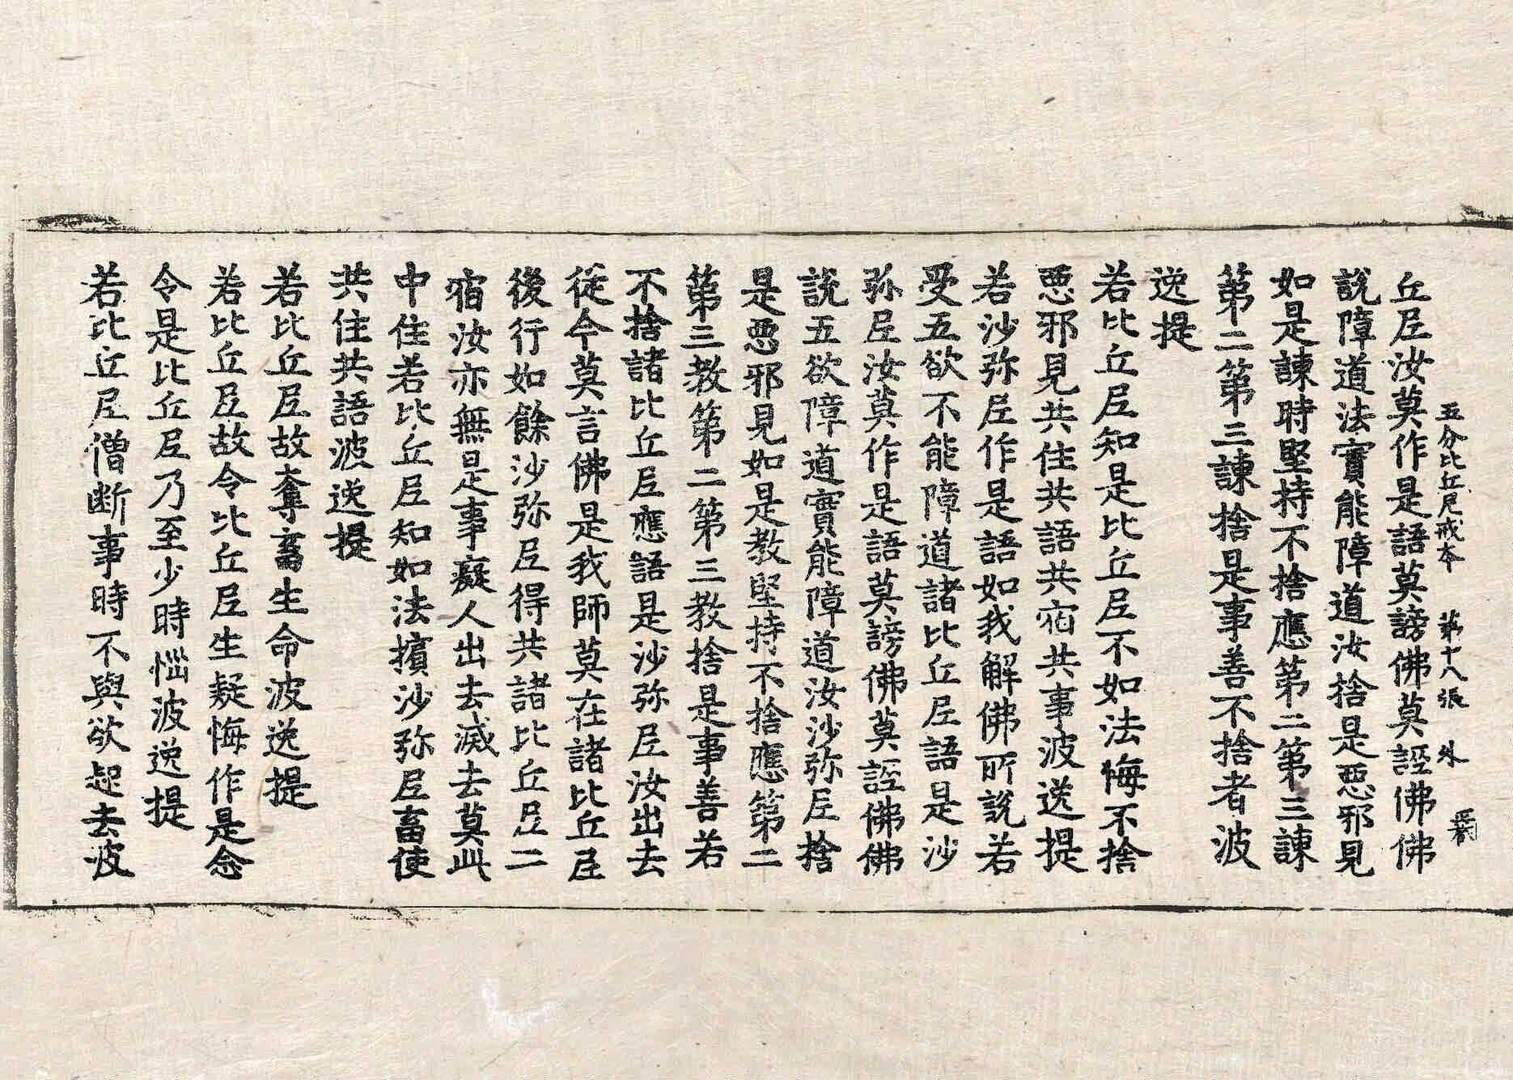 五分比丘尼戒本 第十八張 外
丘尼汝莫作是語莫謗佛莫誣佛佛
說障道法實能障道汝捨是惡邪見
如是諫時堅持不捨應第二第三諫
第二第三諫捨是事善不捨者波
逸提
若比丘尼知是比丘尼不如法悔不捨
惡邪見共住共語共宿共事波逸提
若沙弥尼作是語如我解佛所說若
受五欲不能障道諸比丘尼語是沙
弥尼汝莫作是語莫謗佛莫誣佛佛
說五欲障道實能障道汝沙弥尼捨
是惡邪見如是教堅持不捨應第二
第三教第二第三教捨是事善若
不捨諸比丘尼應語是沙弥尼汝出去
從今莫言佛是我師莫在諸比丘尼
後行如餘沙弥尼得共諸比丘尼二
宿汝亦無是事癡人出去滅去莫此
中住若比丘尼知如法擯沙弥尼畜使
共住共語波逸提
若比丘尼故奪畜生命波逸提
若比丘尼故令比丘尼生疑悔作是念
令是比丘尼乃至少時惱波逸提
若比丘尼僧断事時不與欲起去波